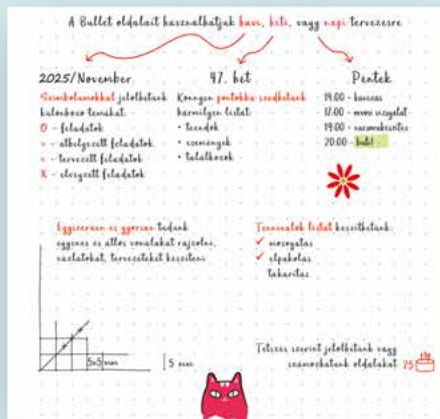 A Bullet oldalait használhatjuk havi, heti, vagy napi tervezésre
2025/November.
Szimbólumokkal jelölhetünk
különböző témákat.
O - feladatok
> - áthelyezett feladatok
< - tervezett feladatok
X - elvégzett feladatok
47. hét
Könnyen pontokba szedhetünk
bármilyen listát:
• teendők
• események
• találkozók
Péntek
12:00 - orvosi vizsgálat
19:00 - vacsorakészítés
20:00 - buli!
Egyszerűen és gyorsan tudunk
egyenes és átlós vonalakat rajzolni,
vázlatokat, terveket készíteni
5x5 mm
5 mm
Tennivalók listát készíthetünk:
✓ mosogatás
✓ elpakolás
takarítás
Tetszés szerint jelölhetünk vagy
számozhatunk oldalakat 25